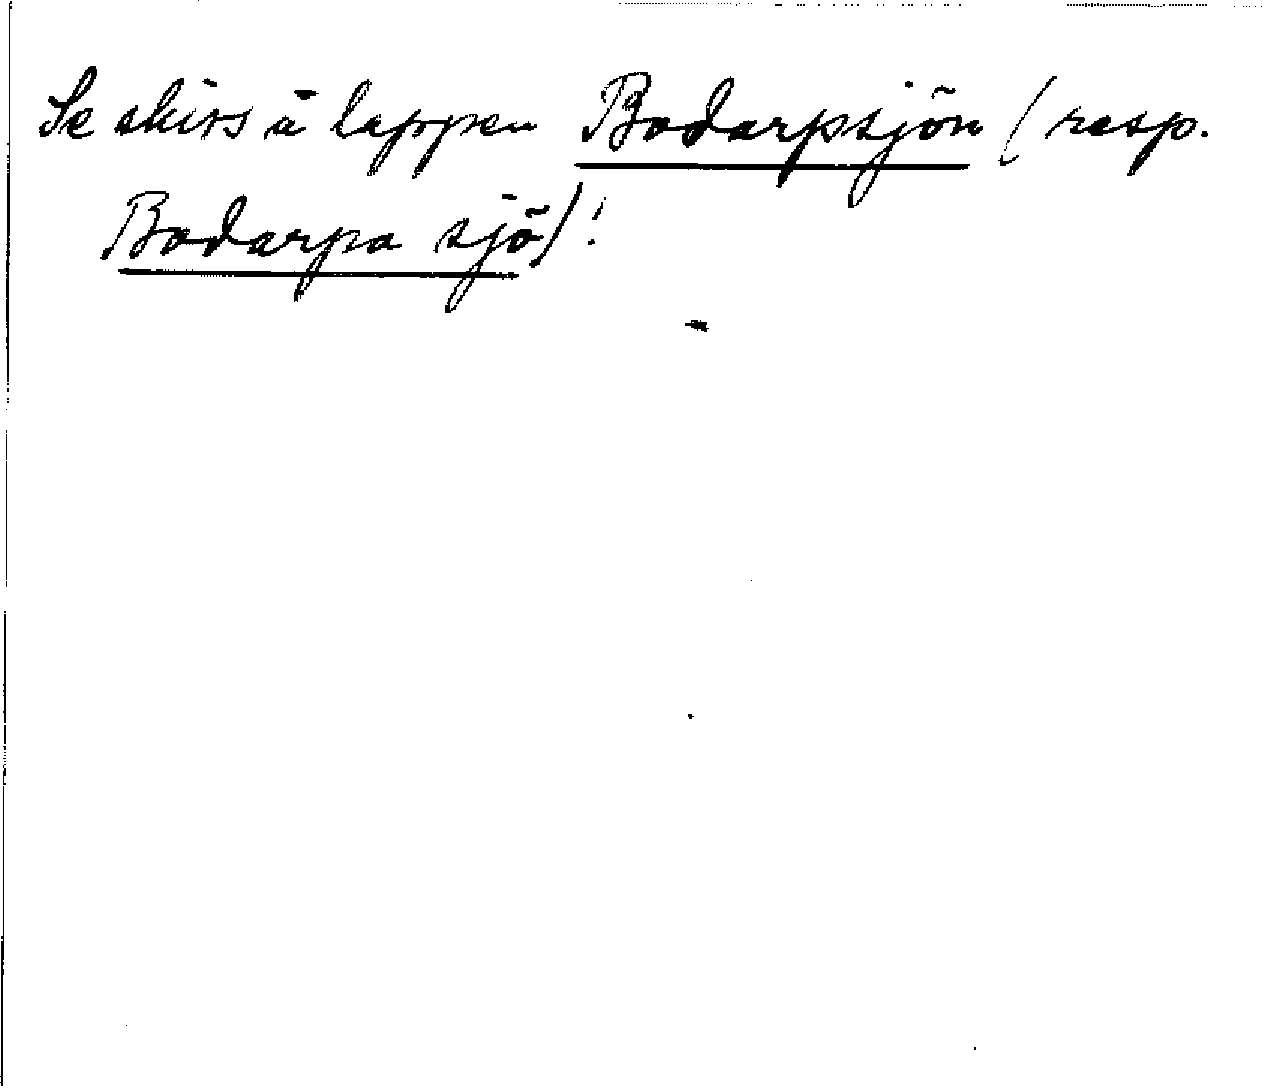 Se skiss å lappen Bodarpsjön (resp.
Bodarpa sjö)!